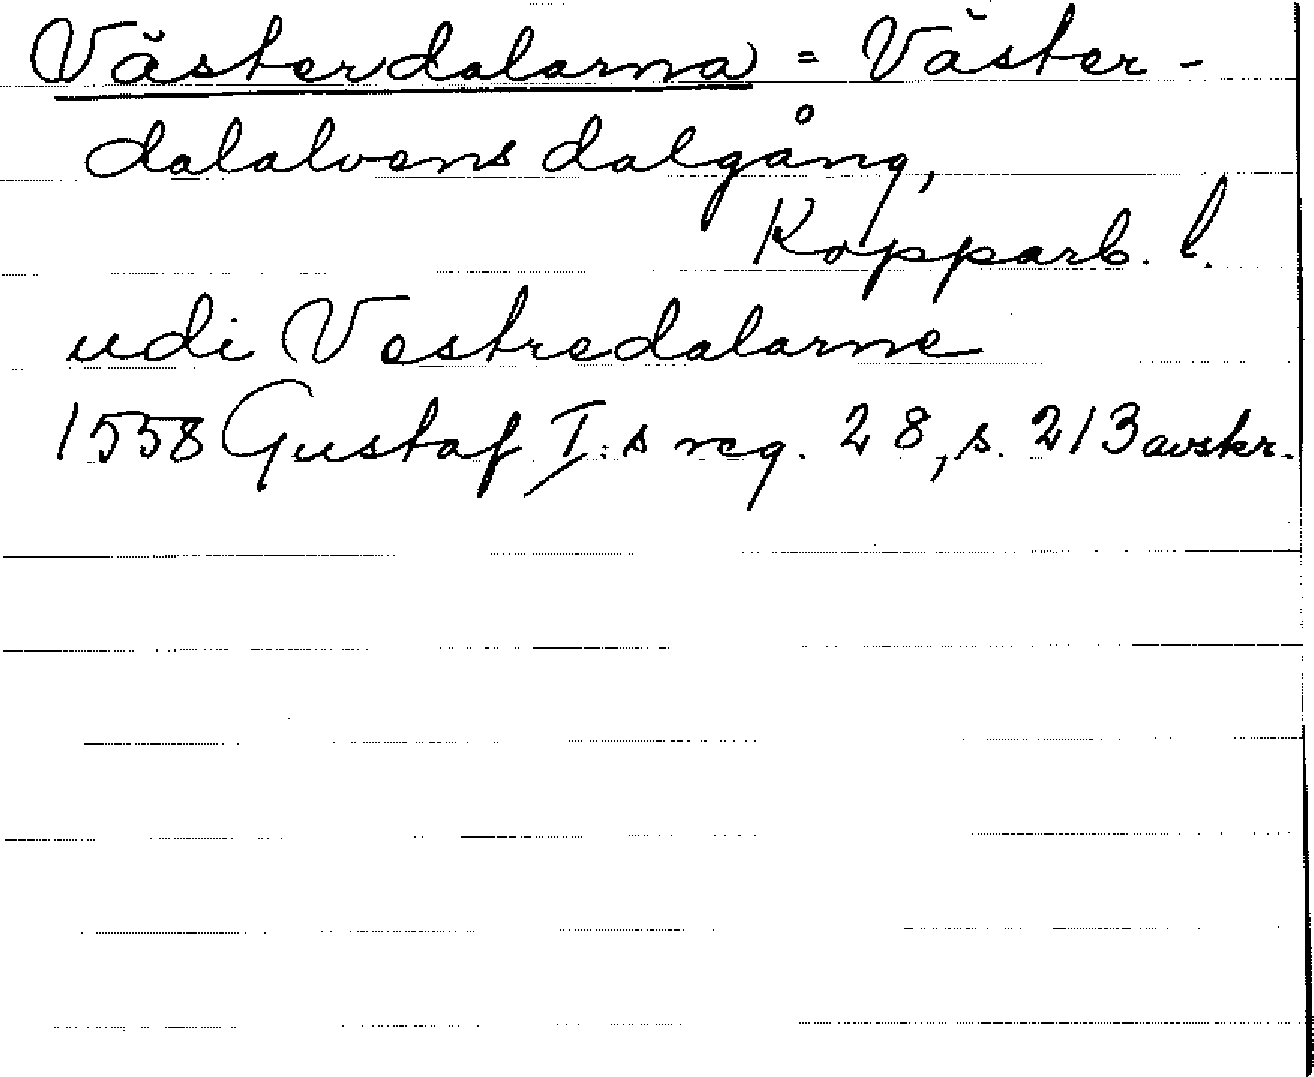 Västerdalarna = Väster-
dalalvens dalgång,
Kopparb. l.
udi Vestredalarne
1558 Gustaf I:s reg. 28, s. 213 avskr.